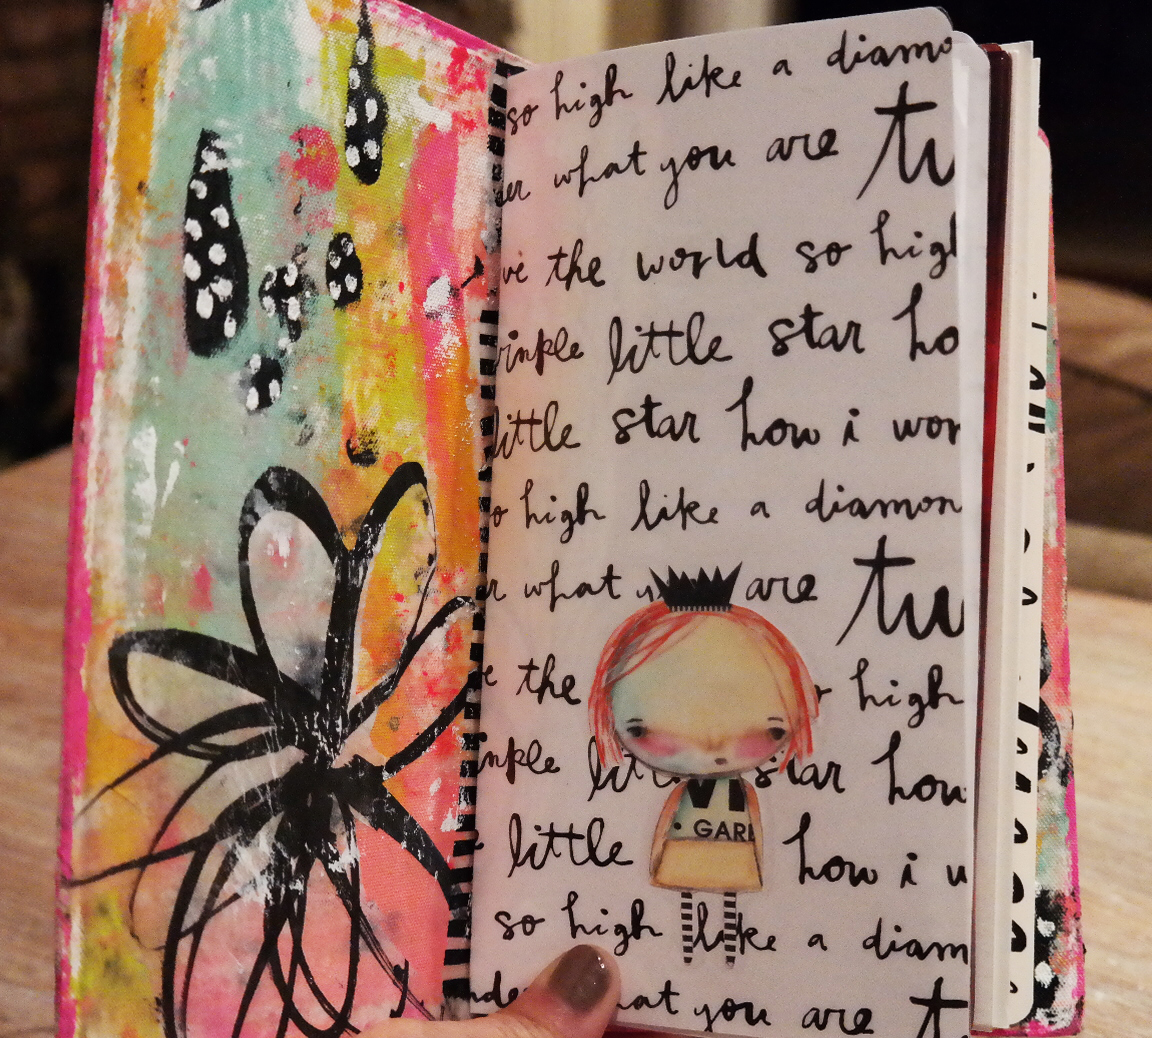 so high like a diamo
er what you are tw
ve the world so high
inkle little star ho
little star how i won
so high like a diamon
er what are tw
e the high
inkle little star how
GARD
little how i w
so high like a diam
nde hat you are t